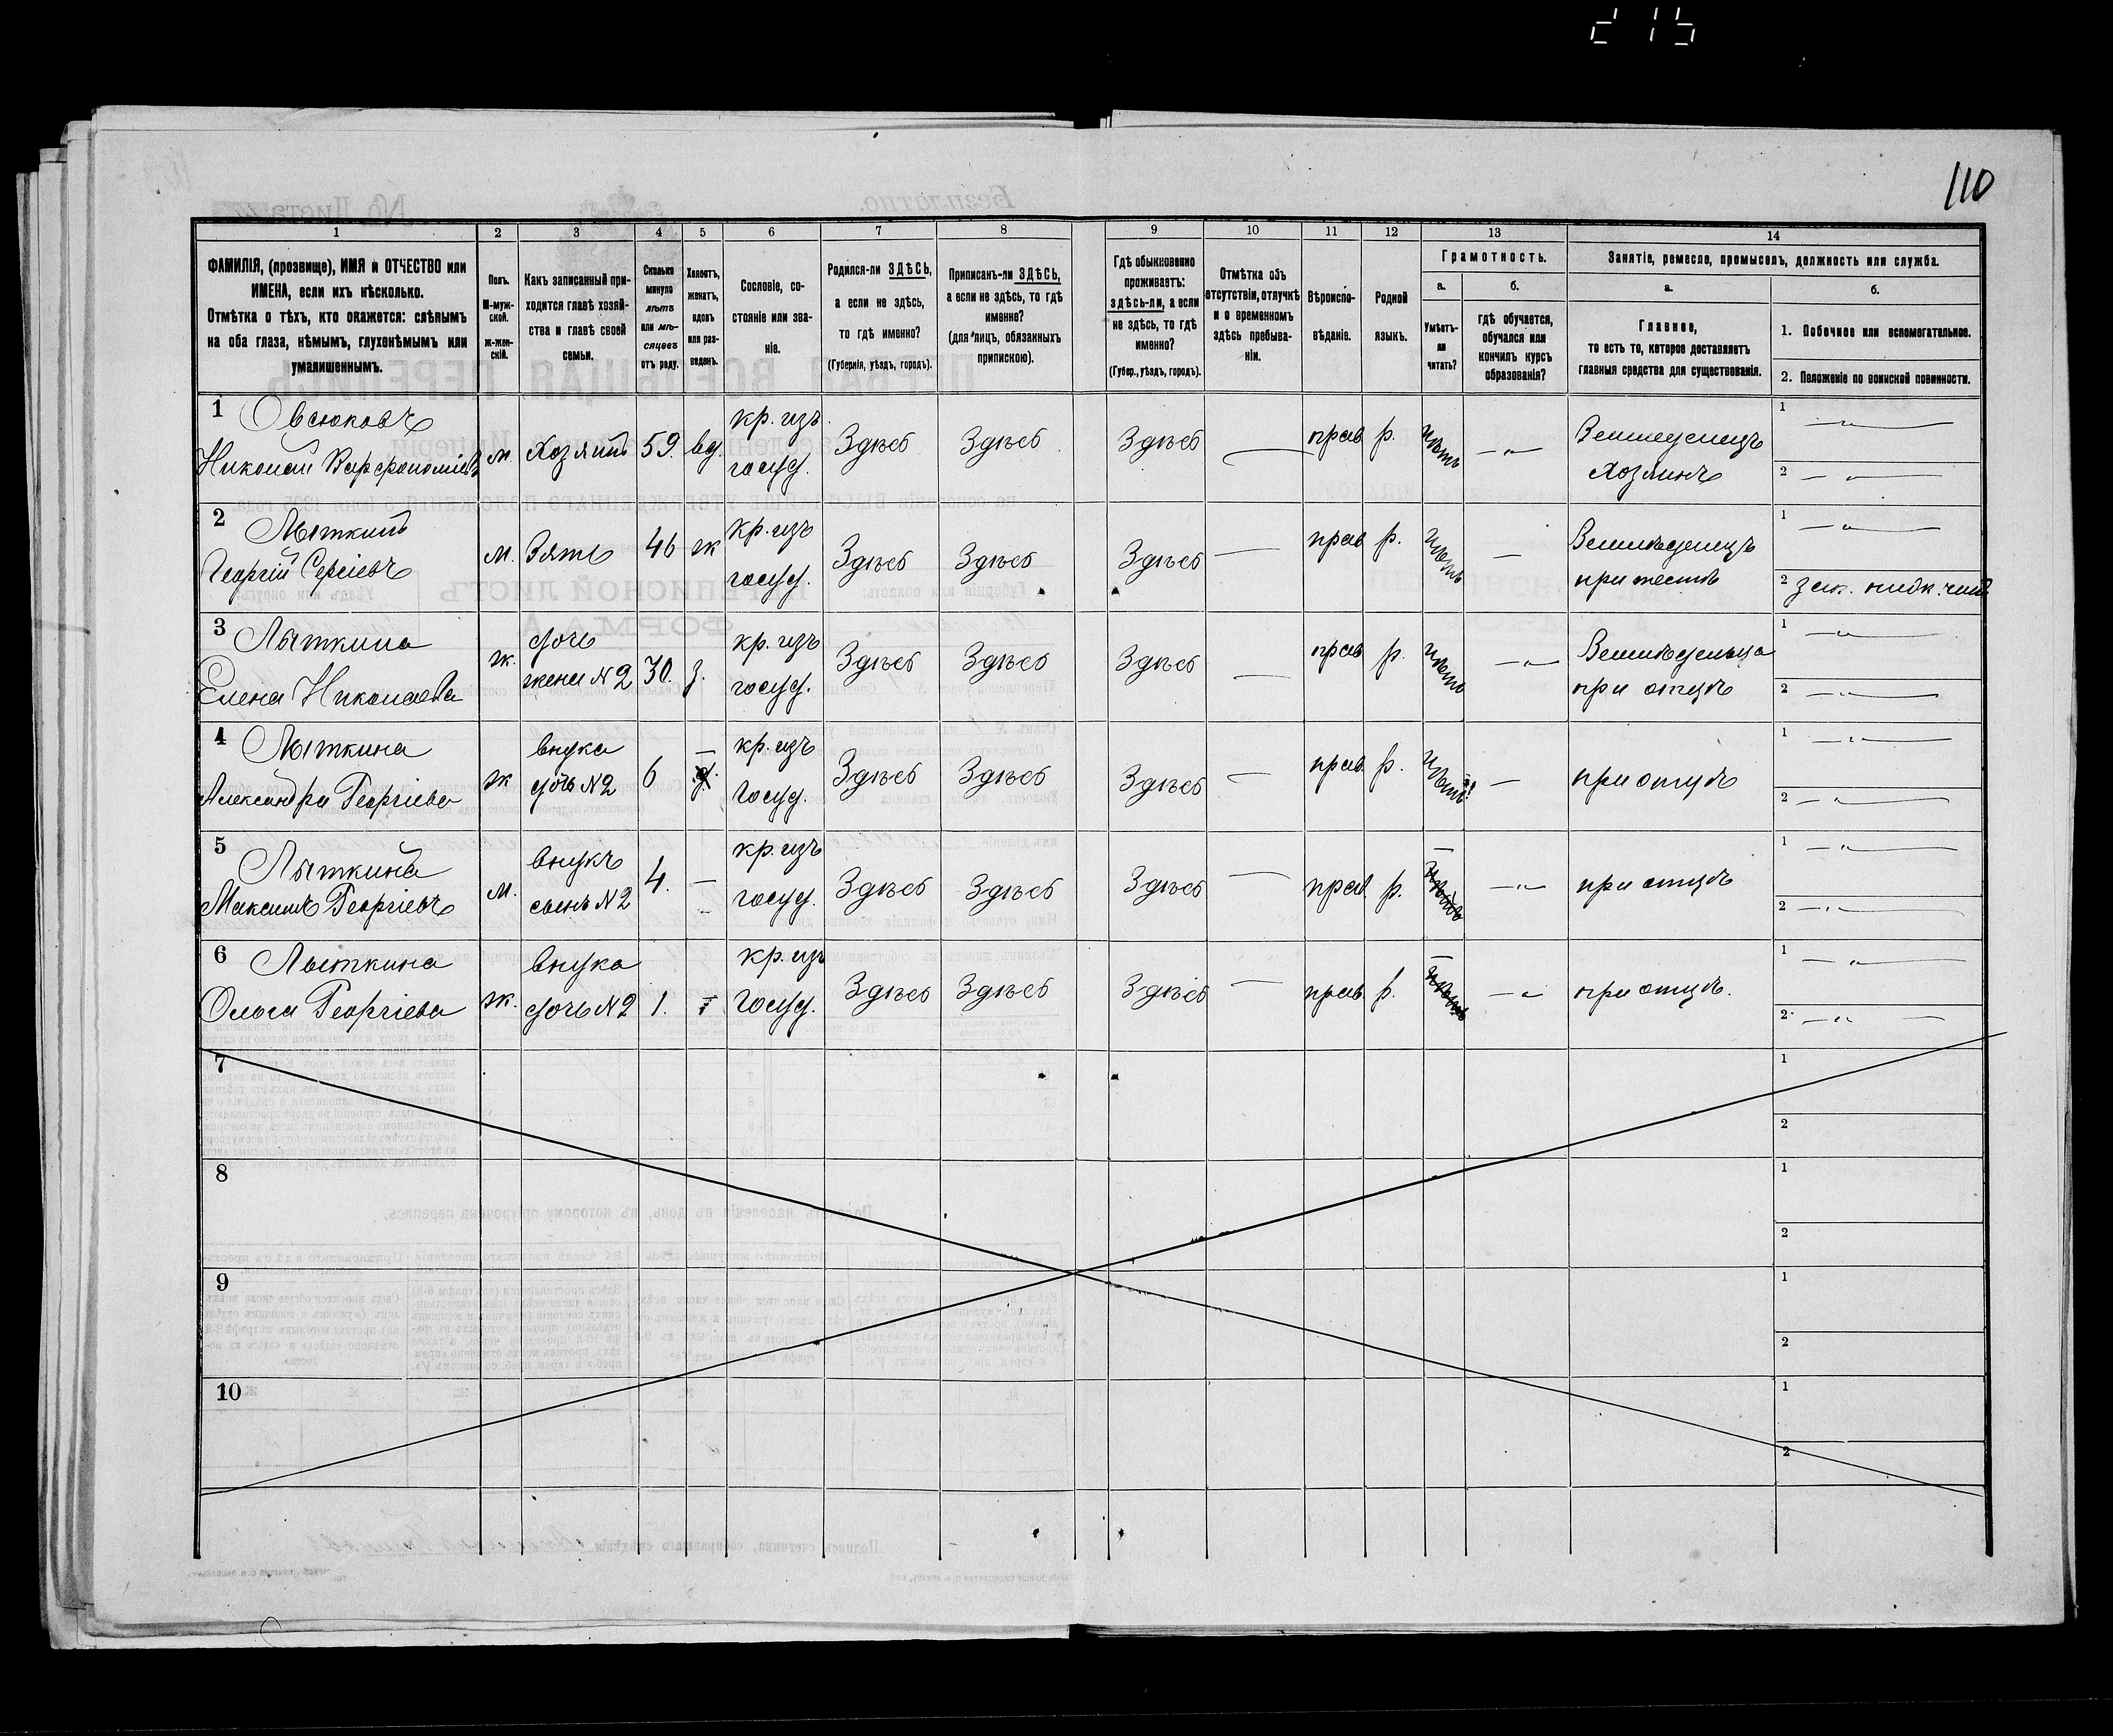 215
110
1
2
3
4
5
6
7
8
9
10
11
12
13
14
ФАМИЛІЯ, (прозвище), ИМЯ и ОТЧЕСТВО или
ИМЕНА, если ихъ нѣсколько.
Отмѣтка о тѣхъ, кто окажется: слѣпымъ
на оба глаза, нѣмымъ, глухонѣмымъ или
умалишеннымъ.
Полъ.
М-муж-
ской.
Ж-жен-
скій.
Какъ записанный при-
ходится главѣ хозяй-
ства и главѣ своей
семьи.
Сколько
минуло
лѣтъ
или мѣ-
сяцевъ
отъ роду.
Холостъ,
женатъ,
вдовъ
или раз-
веденъ.
Сословіе, со-
стояніе или зва-
ніе.
Родился-ли ЗДѢСЬ,
а если не здѣсь,
то гдѣ именно?
(Губернія, уѣздъ, городъ).
Приписанъ-ли ЗДѢСЬ,
а если не здѣсь, то гдѣ
именно?
(для лицъ, обязанныхъ
припискою).
Гдѣ обыкновенно
проживаетъ:
здѣсь-ли, а если
не здѣсь, то гдѣ
именно?
(Губер., уѣздъ, городъ).
Отмѣтка объ
отсутствіи, отлучкѣ
и о временномъ
здѣсь пребыва-
ніи.
Вѣроиспо-
вѣданіе.
Родной
языкъ.
Грамотность.
а.
Умѣетъ-
ли
читать?
б.
гдѣ обучается,
обучался или
кончилъ курсъ
образованія?
Занятіе, ремесло, промыселъ, должность или служба.
а.
Главное,
то есть то, которое доставляетъ
главныя средства для существованія.
б.
1. Побочное или вспомогательное.
2. Положеніе по воинской повинности.
1 Овсюковъ
Николай Варфоломіевъ
м.
Хозяинъ
59.
вд.
кр. изъ
госуд.
Здѣсь
Здѣсь
Здѣсь
—
прав
р.
нѣтъ
— „ —
Земледелецъ
Хозяинъ
1 — „ —
2 — „ —
2 Лыткинъ
Георгій Сергіевъ
м.
Зять
46
ж
кр. изъ
госуд.
Здѣсь
Здѣсь
Здѣсь
—
прав
р.
нѣтъ
—
Земледѣлецъ
при тестѣ
1 — „ —
2 зап. нижн. чинъ
3 Лыткина
Елена Николаева
ж.
дочь
жена N 2
30.
з.
кр. изъ
госуд.
Здѣсь
Здѣсь
Здѣсь
—
прав
р.
нѣтъ
— „ —
при отцѣ
1 — „ —
2 — „ —
4 Лыткина
Александра Георгіева
ж
внука
дочь N 2
6
—
кр. изъ
госуд.
Здѣсь
Здѣсь
Здѣсь
—
прав
р.
нѣтъ
—
при отцѣ
1 — „ —
2 — „ —
5 Лыткинъ
Максимъ Георгіевъ
м.
внукъ
сынъ N 2
4.
—
кр. изъ
госуд.
Здѣсь
Здѣсь
Здѣсь
—
прав.
р.
—
— „ —
при отцѣ
1 — „ —
2 — „ —
6 Лыткина
Ольга Георгіева
ж.
внука
дочь N 2
1.
—
кр. изъ
госуд.
Здѣсь
Здѣсь
Здѣсь
—
прав
р.
—
— „ —
при отцѣ.
1 — „ —
2 — „ —
7
1
2
8
1
2
9
1
2
10
1
2